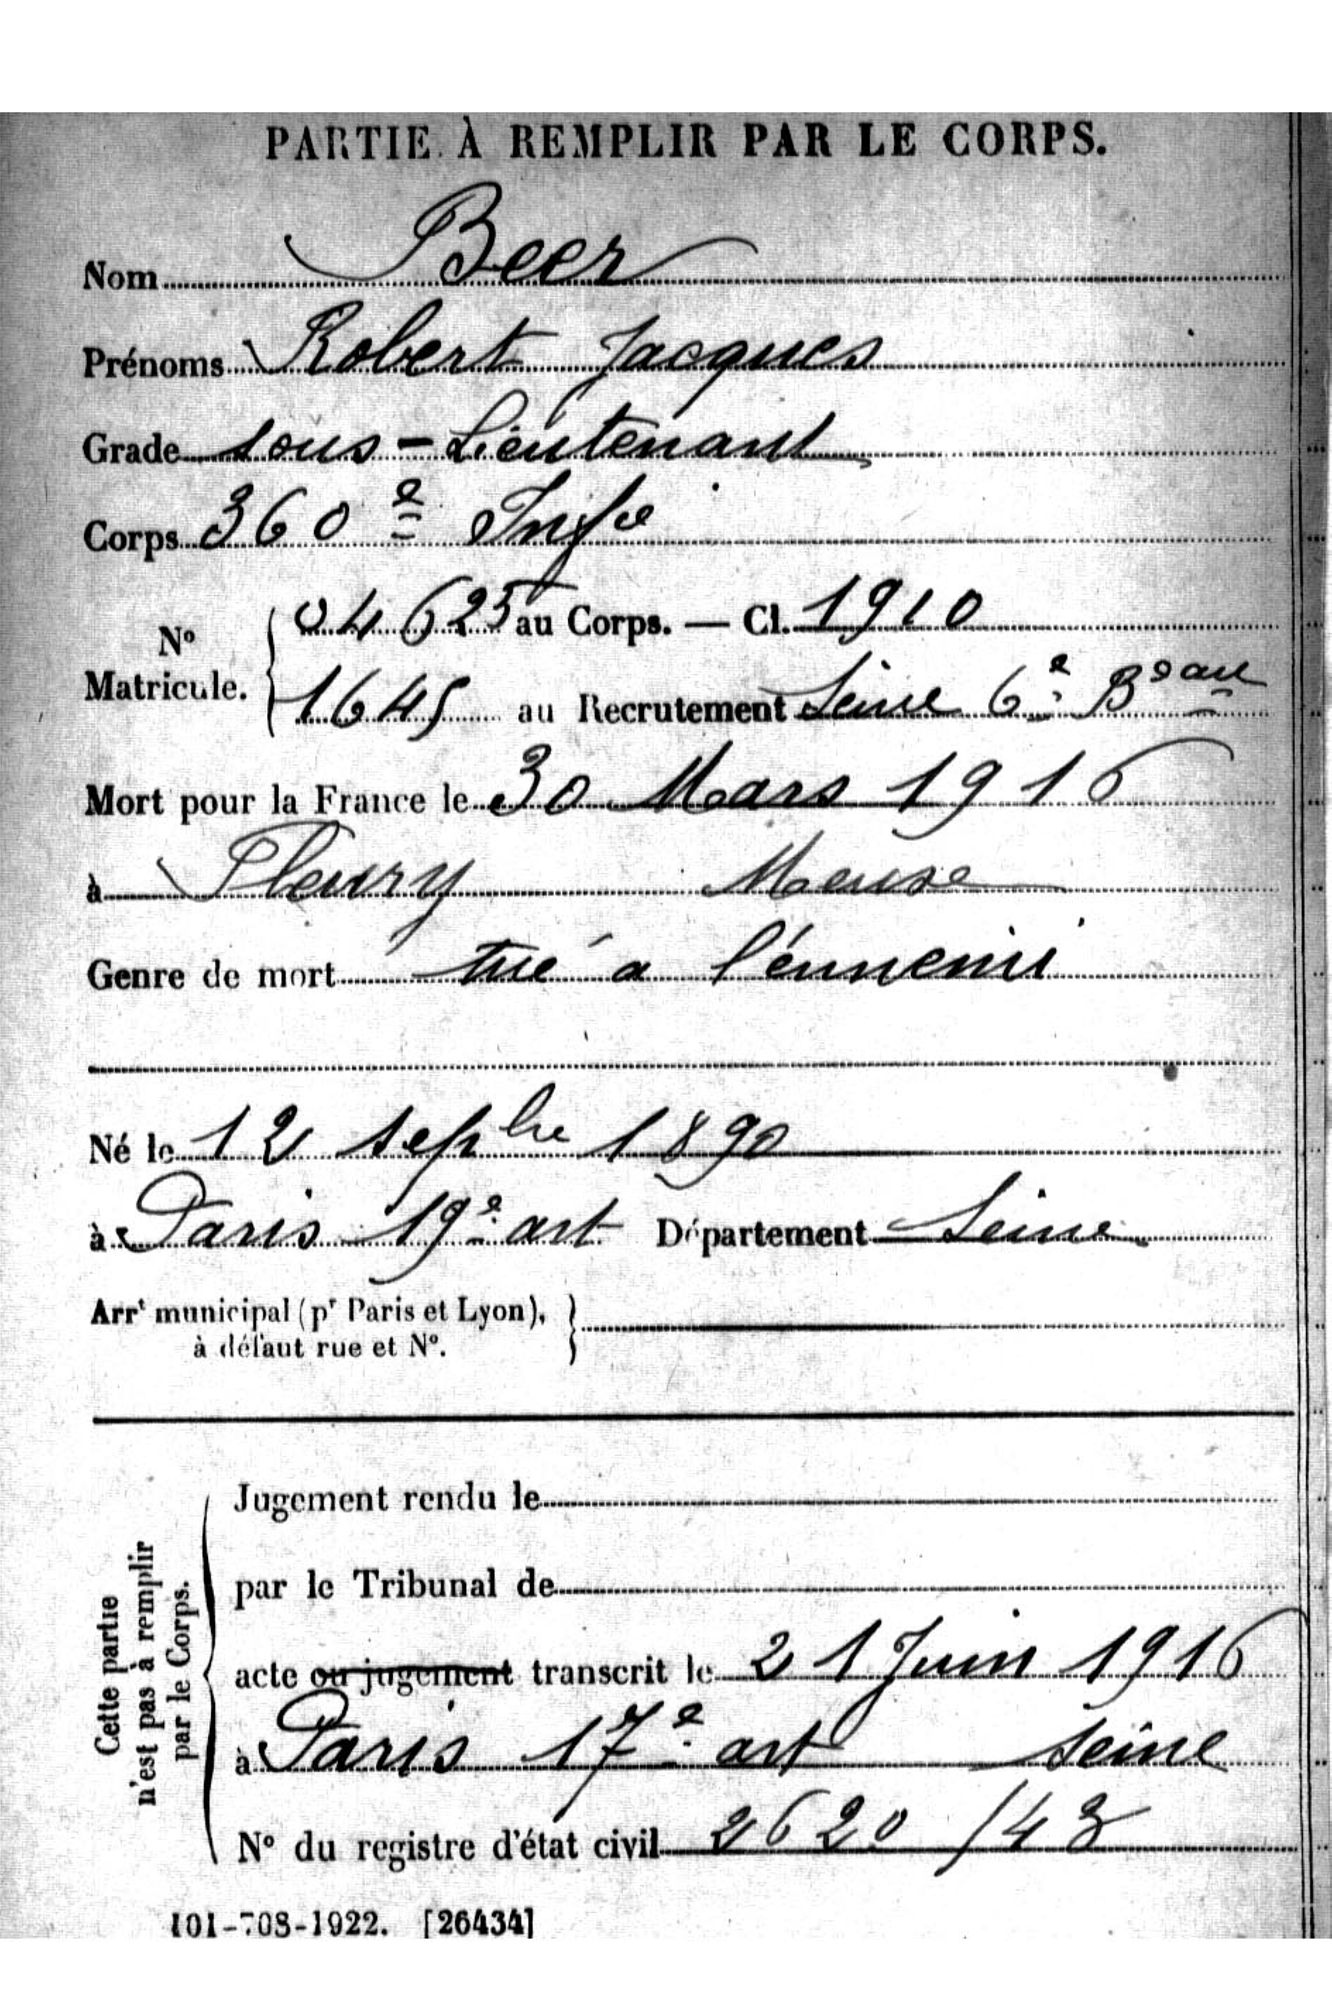 PARTIE À REMPLIR PAR LE CORPS.
Nom Beer
Prénoms Robert Jacques
Grade sous-Lieutenant
Corps 360e Infie
N° Matricule. 04625 au Corps. — Cl. 1910
1645 au Recrutement Seine 6e Beau
Mort pour la France le 30 Mars 1916
à Fleury Meuse
Genre de mort tué a l'énnemi
Né le 12 sepbre 1890
à Paris 19e art Département Seine
Arrt municipal (pr Paris et Lyon),
à défaut rue et N°.
Cette partie
n'est pas à remplir
par le Corps.
Jugement rendu le
par le Tribunal de
acte ou jugement transcrit le 21 Juin 1916
à Paris 17e art seine
N° du registre d'état civil 2620/43
101-708-1922. [26434]